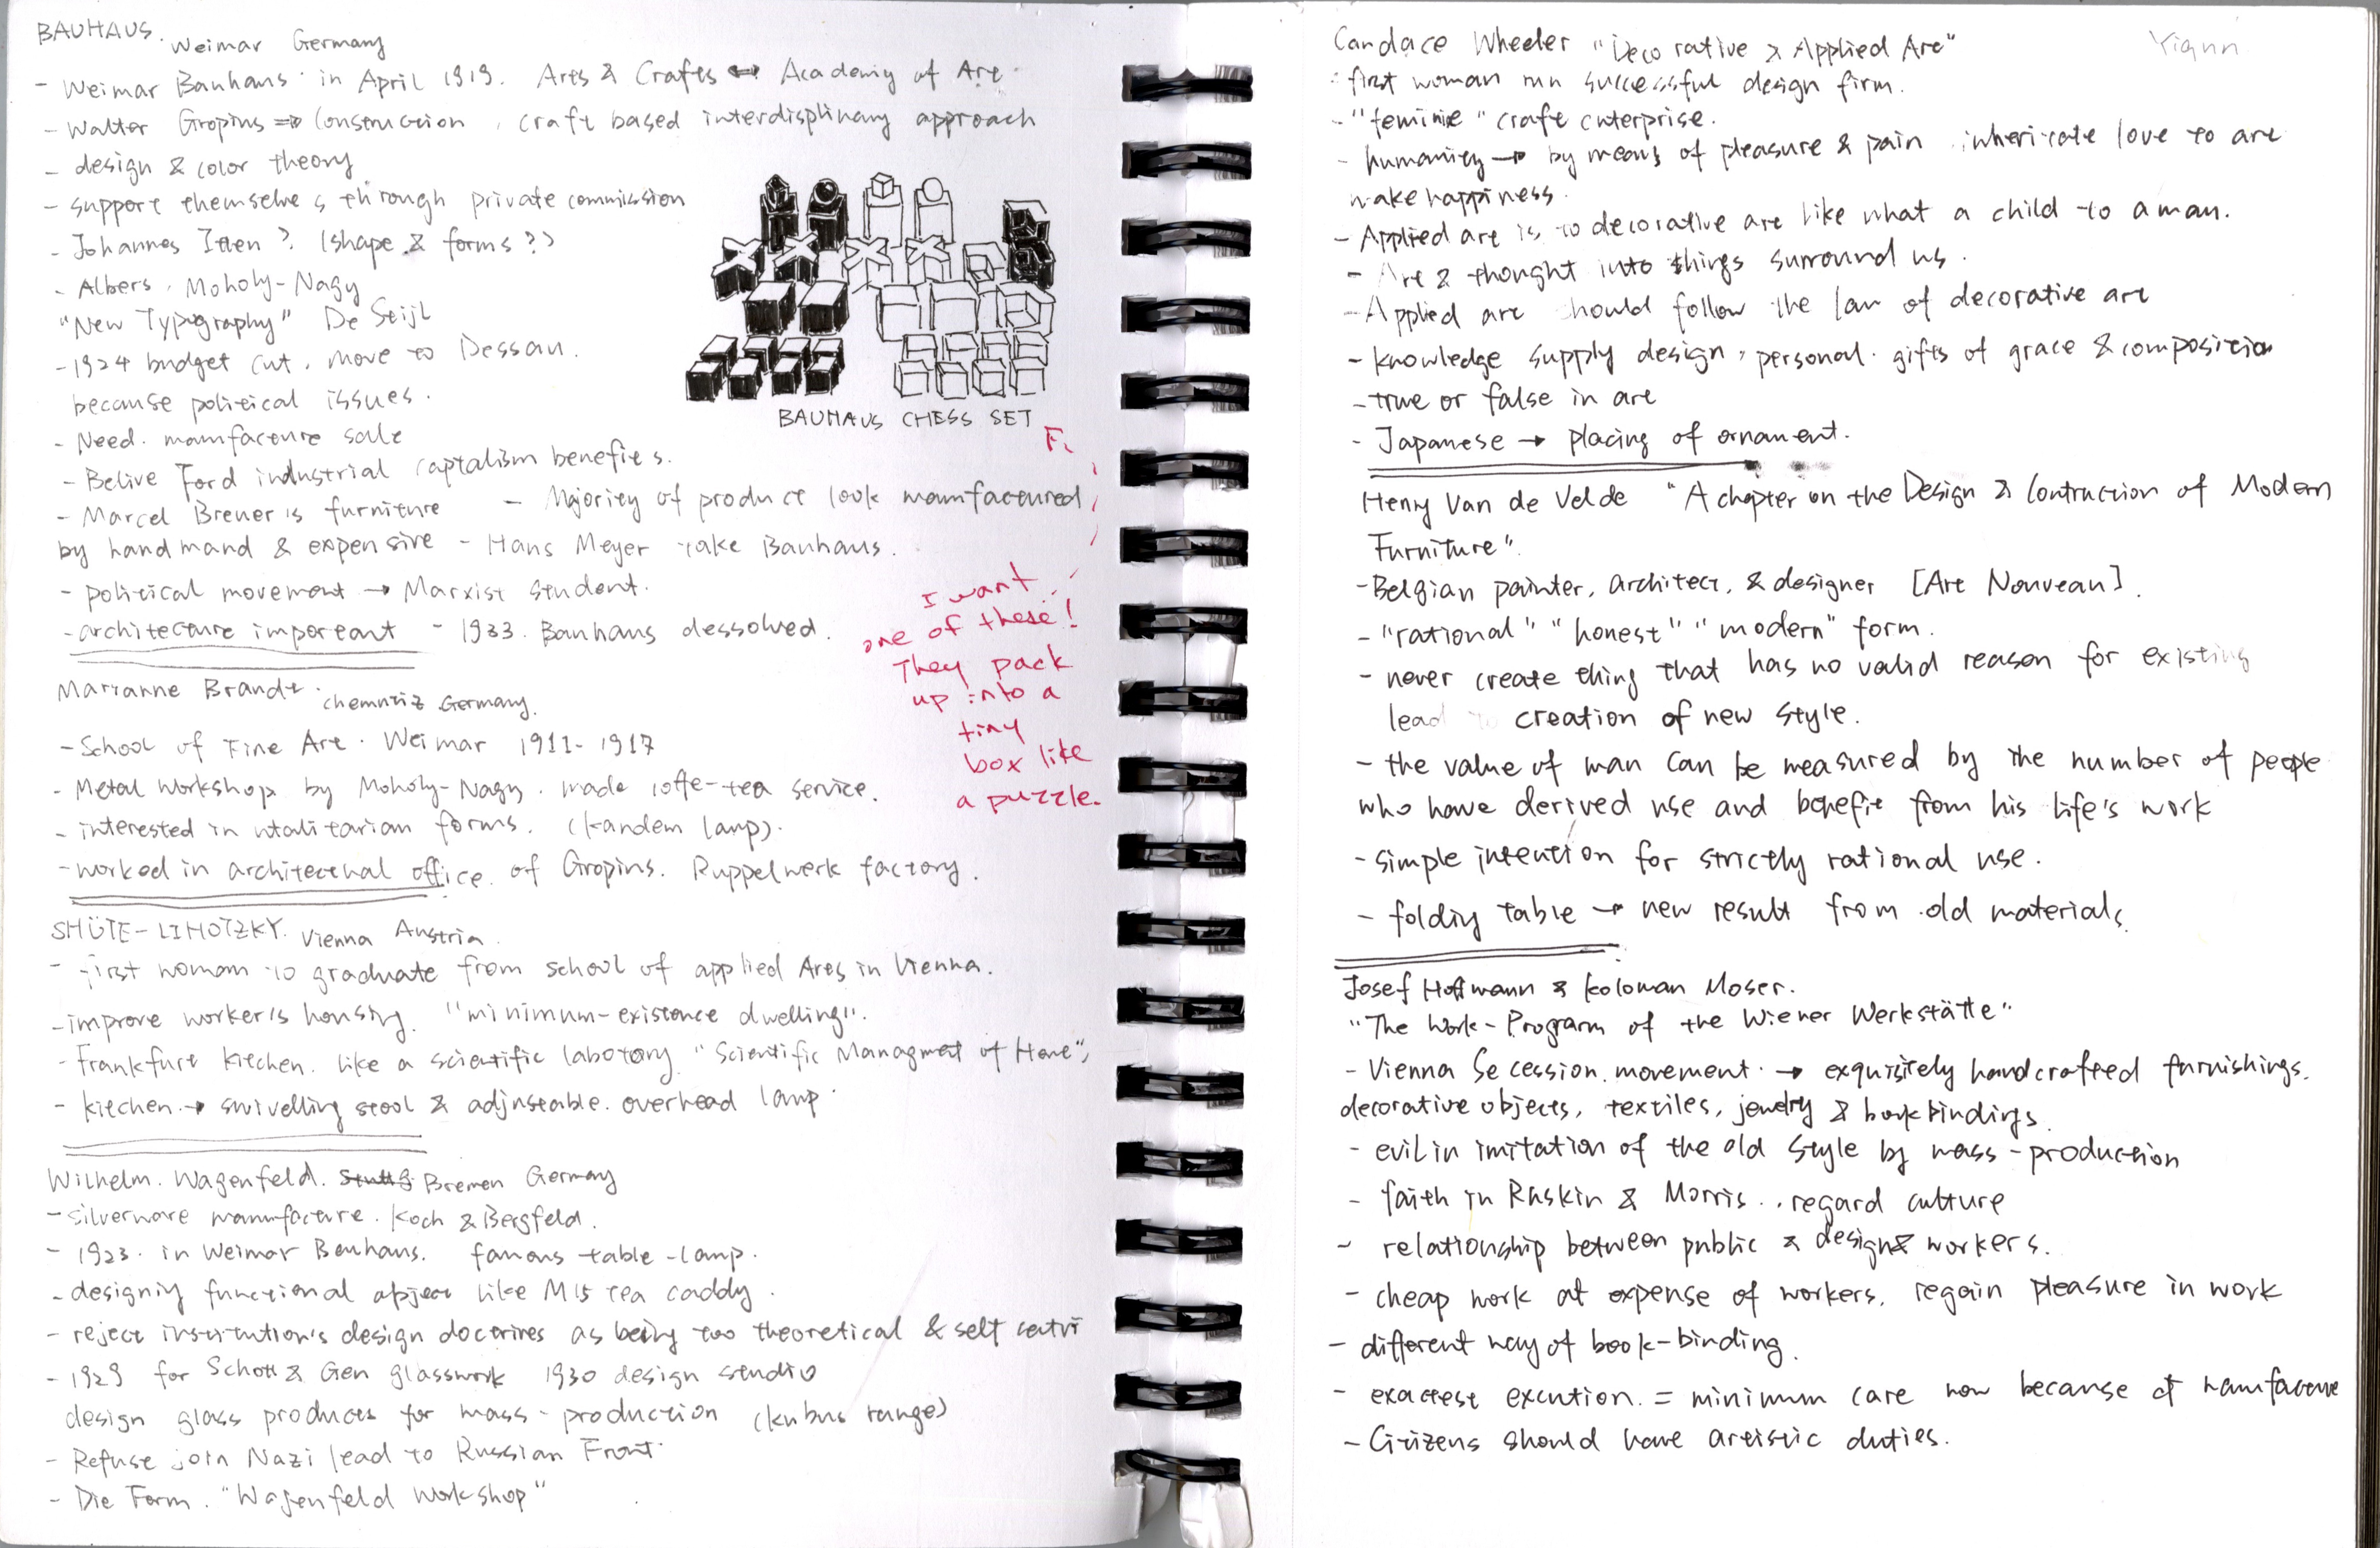 BAUHAUS. Weimar Germany
- Weimar Bauhaus in April 1919. Arts & Crafts ↔ Academy of Art.
- Walter Gropius ⇒ Construction, craft based interdisplinary approach
- design & color theory
- support themselves through private commission
- Johannes Itten? (shape & forms?)
- Albers, Moholy-Nagy
"New Typography" De Stijl
- 1924 budget cut, move to Dessau.
because political issues.
- Need. manufacture sale
- Belive Ford industrial captalism benefits.
- Marcel Breuer's furniture - Majority of product look manufactured
by handmand & expensive - Hans Meyer take Bauhaus.
- political movement → Marxist student.
- architecture important - 1933. Bauhaus dessolved.
BAUHAUS CHESS SET
I want
one of these!
They pack
up into a
tiny
box like
a puzzle.
Marianne Brandt. chemnitz Germany.
- School of Fine Art. Weimar 1911-1917
- Metal workshop by Moholy-Nagy. made coffe-tea service.
- interested in utalitarian forms. (kandem lamp).
- worked in architectural office of Gropius. Ruppelwerk factory.
SHÜTE-LIHOTZKY. Vienna Austria
- first woman to graduate from school of applied Arts in Vienna.
- improve worker's housing. "minimum-existence dwelling".
- Frankfurt kitchen. like a scientific labotory "Scientific Managment of Home",
- kitchen → swivelling stool & adjustable overhead lamp.
Wilhelm. Wagenfeld. Bremen Germany
- silverware manufacture. Koch & Bergfeld.
- 1923. in Weimar Bauhaus. famous table-lamp.
- designig functional object like M15 tea caddy.
- reject institution's design doctrines as being too theoretical & self
- 1929 for Schott & Gen glasswork 1930 design studio
design glass products for mass-production (kubus range)
- Refuse join Nazi lead to Russian Front.
- Die Form. "Wagenfeld Workshop"
Yiqun
Candace Wheeler "Decorative & Applied Art"
- first woman run successful design firm.
- "feminie" craft enterprise.
- humanity → by means of pleasure & pain love to art
make happiness.
- Applied art is to decorative art like what a child to a man.
- Art & thought into things surround us.
- Applied art should follow the law of decorative art
- knowledge supply design, personal gifts of grace & composition
- true or false in art
- Japanese → placing of ornament.
Henry Van de Velde "A chapter on the Design & Contruction of Modern
Furniture".
- Belgian painter, architect, & designer [Art Nouveau].
- "rational" "honest" "modern" form.
- never create thing that has no valid reason for existing
lead to creation of new style.
- the value of man can be measured by the number of people
who have derived use and benefit from his life's work
- simple intention for strictly rational use.
- foldig table → new result from old materials.
Josef Hoffmann & Koloman Moser.
"The Work-Program of the Wiener Werkstätte"
- Vienna Secession movement. → exquisitely handcrafted furnishings.
decorative objects, textiles, jewelry & bookbindings.
- evil in imitation of the old style by mass-production
- faith in Ruskin & Morris. regard culture
- relationship between public & design & workers.
- cheap work at expense of workers. regain pleasure in work
- different way of book-binding.
- exactest excution. = minimum care now because of manufacture
- Citizens should have artistic duties.